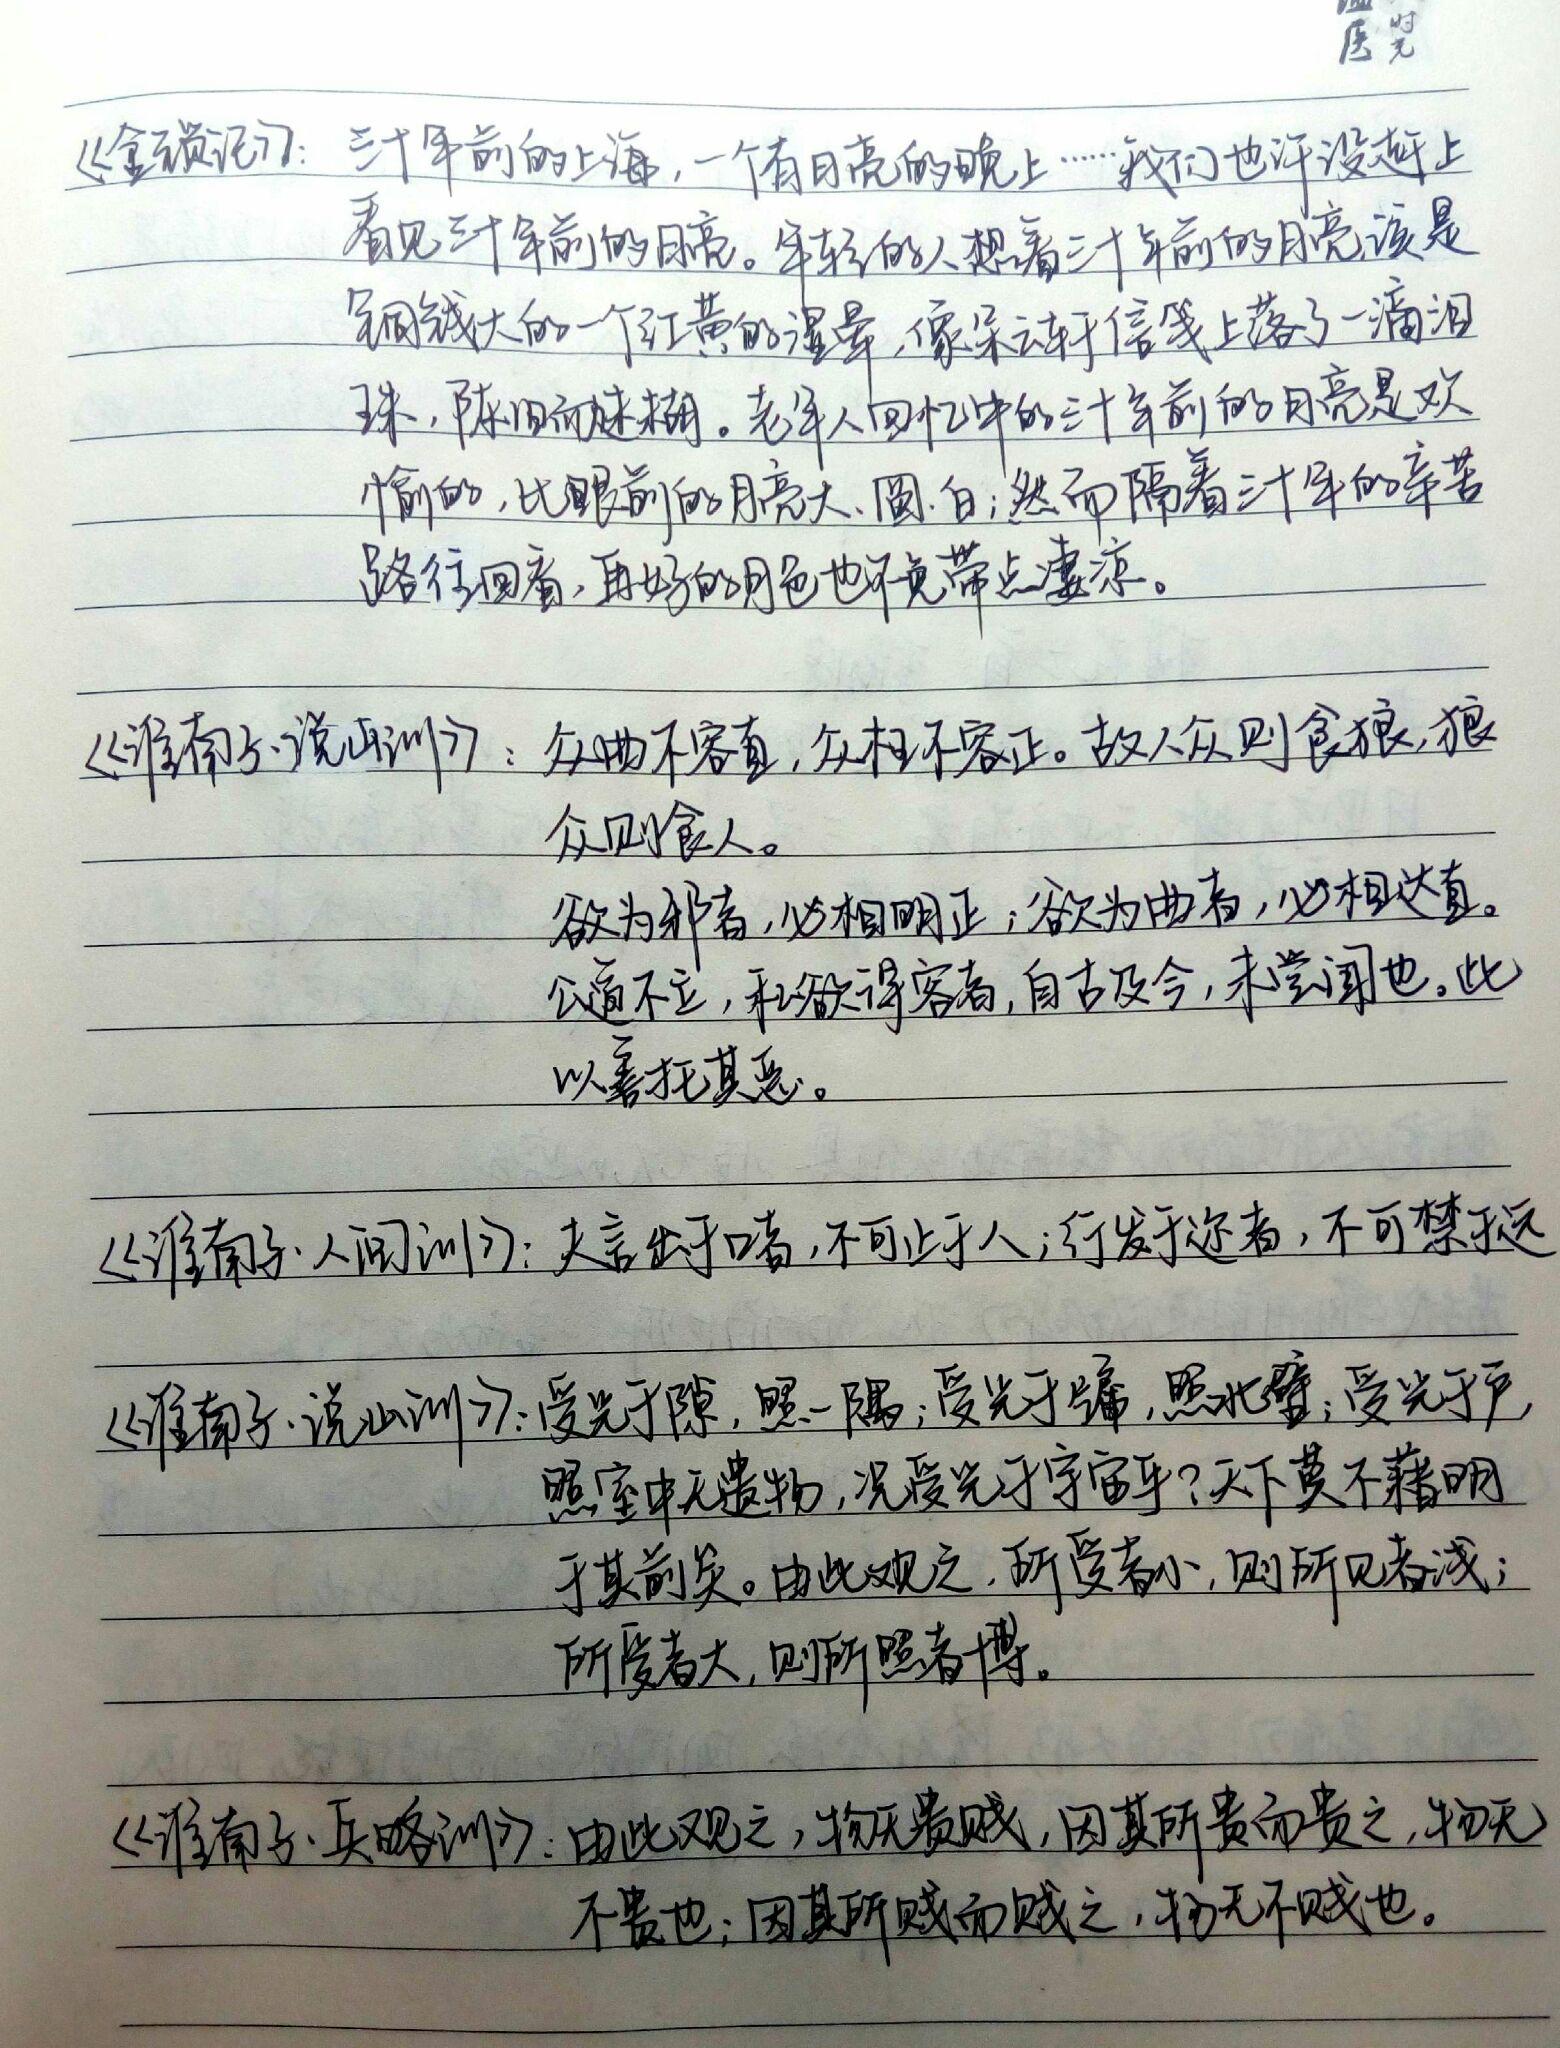 时光
医
《金锁记》：三十年前的上海，一个有月亮的晚上……我们也许没赶上
看见三十年前的月亮。年轻的人想着三十年前的月亮该是
铜钱大的一个红黄的湿晕，像朵云轩信笺上落了一滴泪
珠，陈旧而迷糊。老年人回忆中的三十年前的月亮是欢
愉的，比眼前的月亮大、圆、白；然而隔着三十年的辛苦
路往回看，再好的月色也不免带点凄凉。
《淮南子·说山训》：众曲不容直，众枉不容正。故人众则食狼，狼
众则食人。
欲为邪者，必相明正；欲为曲者，必相达直。
公道不立，私欲得容者，自古及今，未尝闻也。此
以善托其恶。
《淮南子·人间训》：夫言出于口者，不可止于人；行发于迩者，不可禁于远
《淮南子·说山训》：受光于隙，照一隅；受光于牖，照北壁；受光于户，
照室中无遗物，况受光于宇宙乎？天下莫不藉明
于其前矣。由此观之，所受者小，则所见者浅；
所受者大，则所照者博。
《淮南子·兵略训》：由此观之，物无贵贱，因其所贵而贵之，物无
不贵也；因其所贱而贱之，物无不贱也。